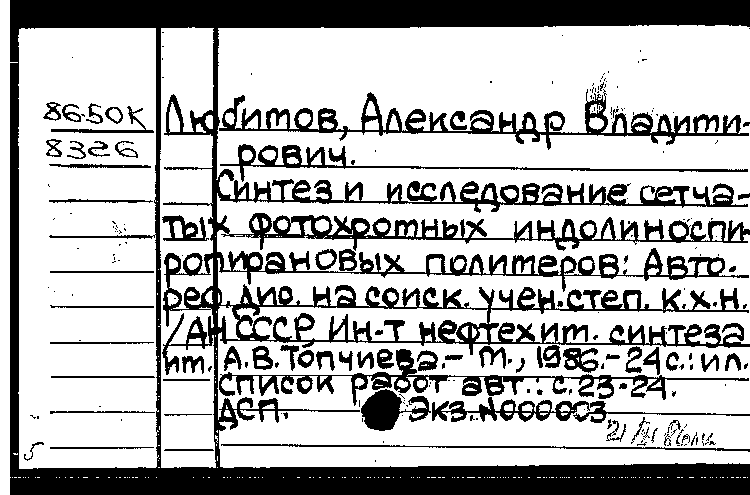 86-50К Любимов, Александр Владими-
8326 рович.
Синтез и исследование сетча-
тых фотохромных индолиноспи-
ропирановых полимеров: Авто-
реф. дис. на соиск. учен. степ. к.х.н.
/АН СССР Ин-т нефтехим. синтеза
им. А.В.Топчиева.- М., 1986.-24с.:ил.
список работ авт.: с.23-24.
ДСП. Экз.N000003
5